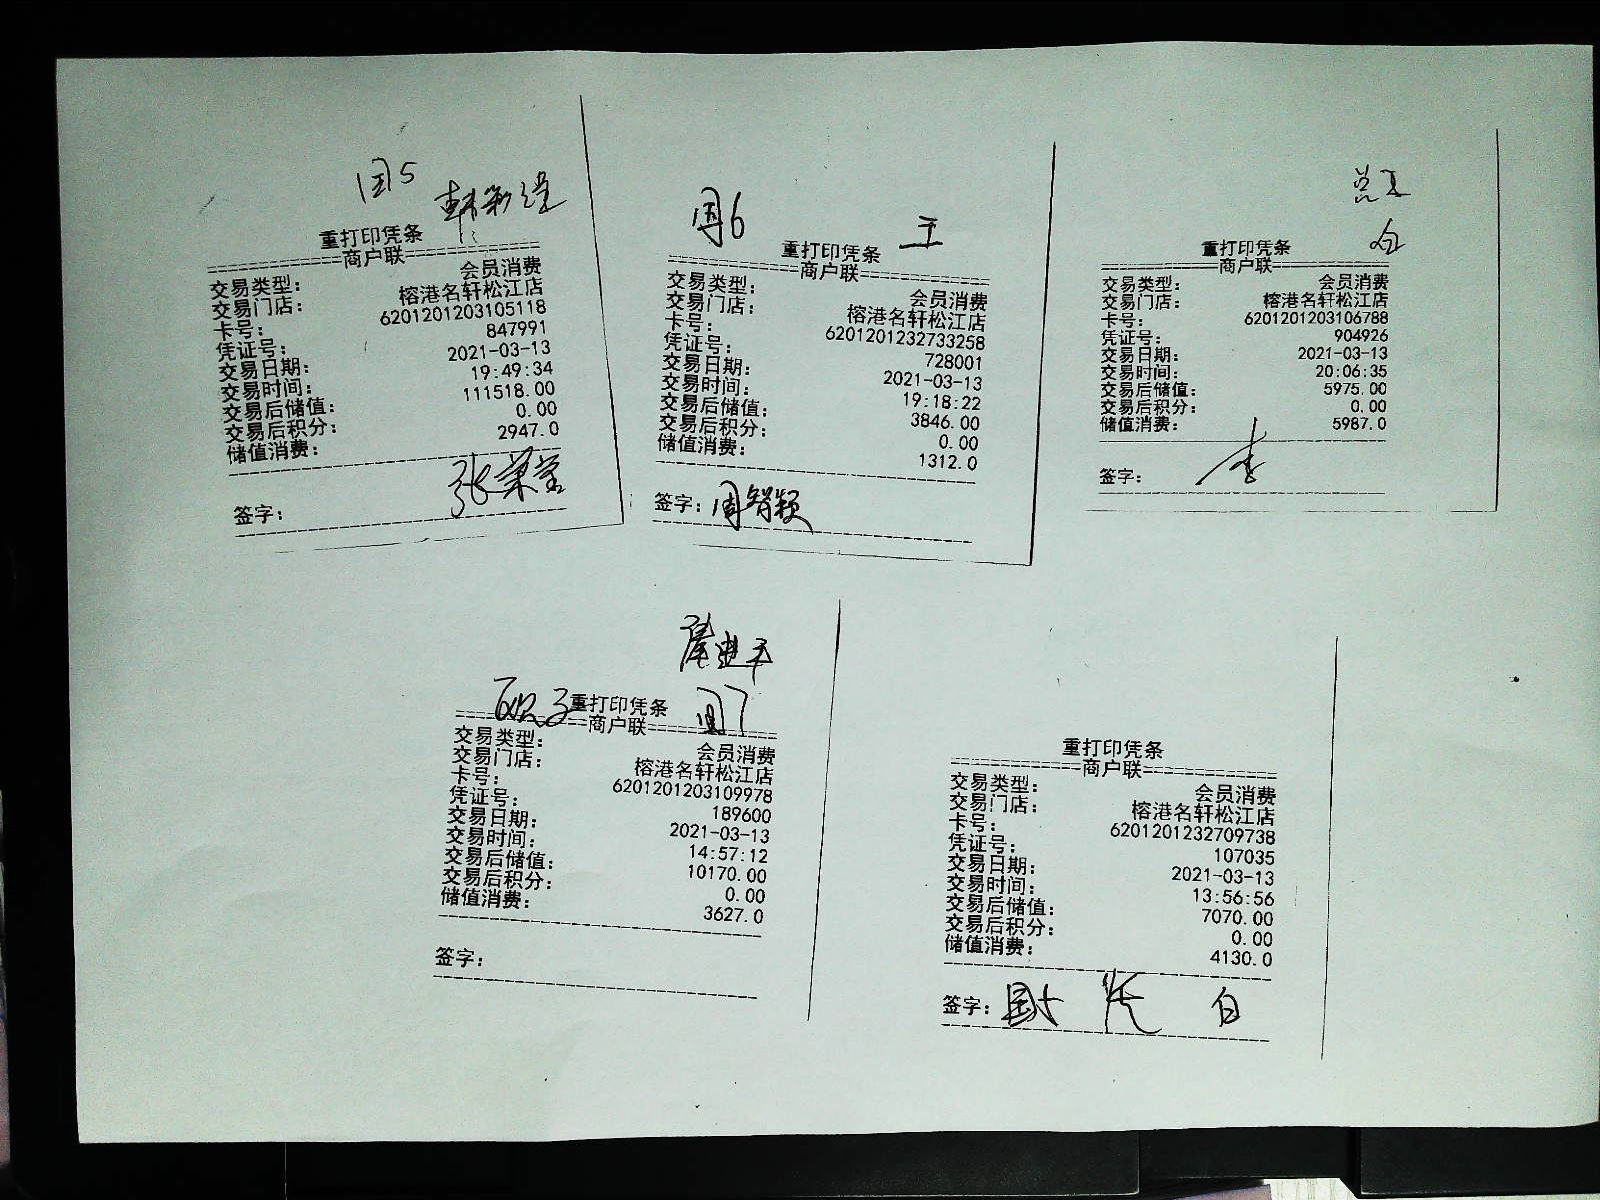 周5
重打印凭条
商户联
交易类型: 会员消费
交易门店: 榕港名轩松江店
卡号: 6201201203105118
凭证号: 847991
交易日期: 2021-03-13
交易时间: 19:49:34
交易后储值: 111518.00
交易后积分: 0.00
储值消费: 2947.0
签字:
周6 王
重打印凭条
商户联
交易类型: 会员消费
交易门店: 榕港名轩松江店
卡号: 6201201232733258
凭证号: 728001
交易日期: 2021-03-13
交易时间: 19:18:22
交易后储值: 3846.00
交易后积分: 0.00
储值消费: 1312.0
签字: 周智颖
重打印凭条
商户联
交易类型: 会员消费
交易门店: 榕港名轩松江店
卡号: 6201201203106788
凭证号: 904926
交易日期: 2021-03-13
交易时间: 20:06:35
交易后储值: 5975.00
交易后积分: 0.00
储值消费: 5987.0
签字: 李
重打印凭条 周7
商户联
交易类型: 会员消费
交易门店: 榕港名轩松江店
卡号: 6201201203109978
凭证号: 189600
交易日期: 2021-03-13
交易时间: 14:57:12
交易后储值: 10170.00
交易后积分: 0.00
储值消费: 3627.0
签字:
重打印凭条
商户联
交易类型: 会员消费
交易门店: 榕港名轩松江店
卡号: 6201201232709738
凭证号: 107035
交易日期: 2021-03-13
交易时间: 13:56:56
交易后储值: 7070.00
交易后积分: 0.00
储值消费: 4130.0
签字: 白